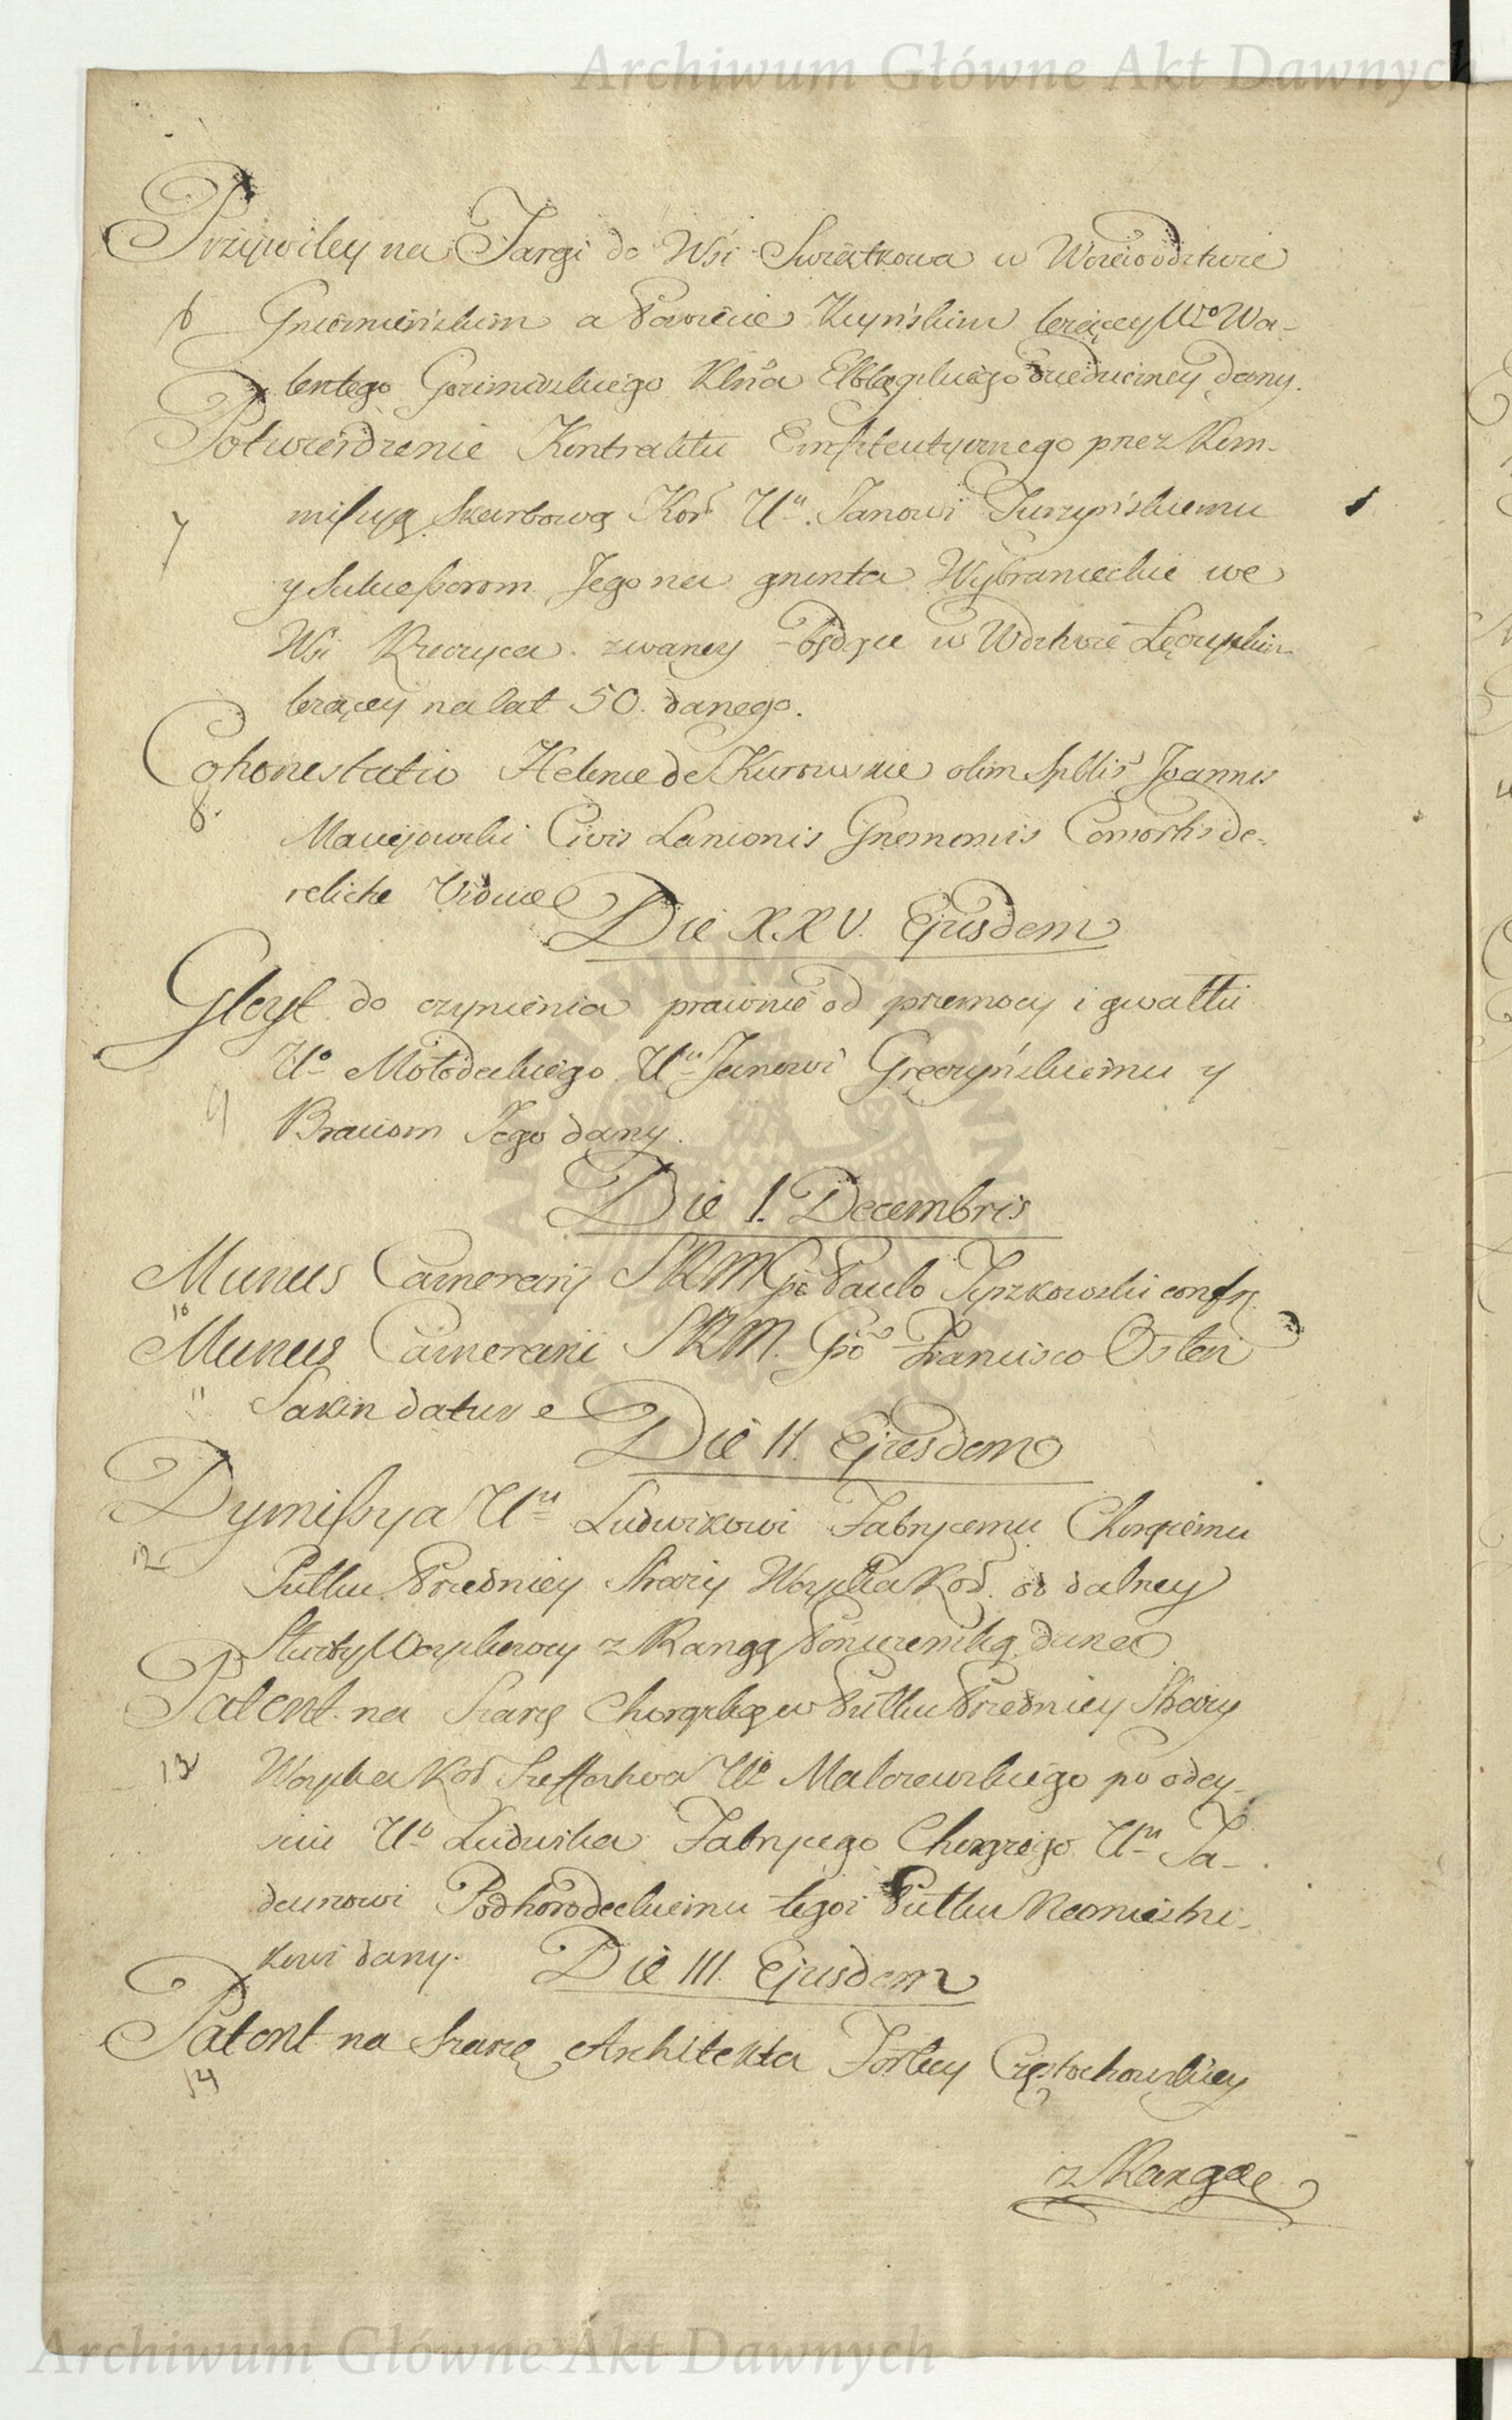 Archiwum Główne Akt Dawnych
Przywiley na Targi do Wsi Swiątkowa w Woiewodztwie
6 Gnieznieńskim a Powiecie Kcyńskim leżącey Wo Wa-
lentego Gorzenskiego Kltta Elbląskiego dziedziczney dany.
Potwierdzenie Kontraktu Emfiteutycznego przez Kom-
7 missyą Skarbową Kor. Uu. Janowi Turzyńskiemu
y Sukcessorom Jego na grunta Wybranieckie we
Wsi Kreczyca zwaney będące w Wdztwie Łęczyckim
leżącey na lat 50. danego.
Cohonestatio Helenæ de Kurowskie olim Spblis Joannis
8. Maciejowski Civis Lanionis Gnesnensis Consortis de-
relictæ Viduæ
Die XXV. Ejusdem
Gleyt do czynienia prawnie od przemocy i gwałtu
Uo Mołodeckiego Uu Janowi Gręczyńskiemu y
9 Braciom Jego dany.
Die I. Decembris
Munus Camerarij SRM Gso Paulo Tyszkowski confr.
10
Munus Camerarii SRM. Gso Francisco Osten
11 Saken datur
Die II. Ejusdem
Dymissya Uu Ludwikowi Fabrycemu Chorążemu
12 Pułku Przedniey Straży Woyska Kor. od dalszey
Służby Woyskowey z Rangą Porucznika dana
Patent na Szarżę Chorążego w Pułku Przedniey Straży
13 Woyska Kor. Szeffostwa Uo Malczewskiego po odey-
sciu Uo Ludwika Fabrycego Chorążego Uu Ta-
deuszowi Podhorodeckiemu tegoż Pułku Namiestni-
kowi dany.
Die III. Ejusdem
Patent na Szarżę Architekta Fortecy Częstochowskiey
14
z Rangą
Archiwum Główne Akt Dawnych